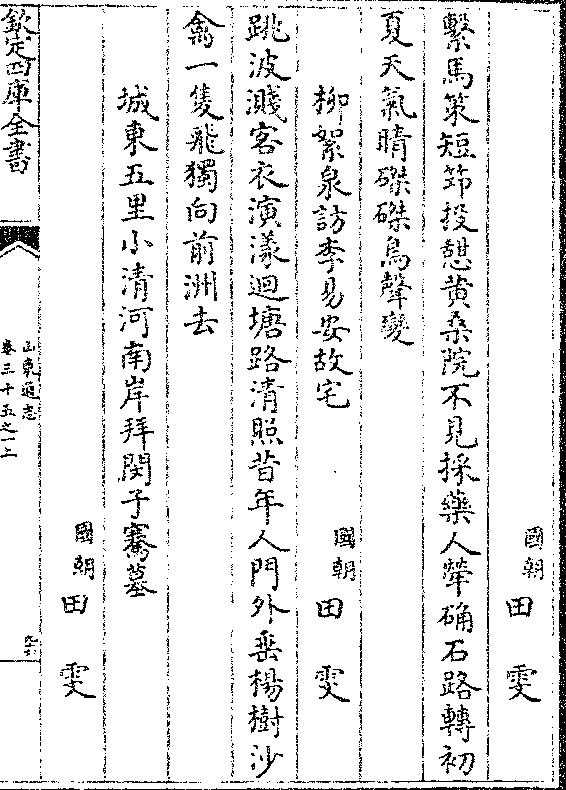 國朝 田 雯
繫馬策短笻投憩黄桑院不見採藥人犖确石路轉初
夏天氣晴磔磔鳥聲變
柳絮泉訪李易安故宅
國朝 田 雯
跳波濺客衣演漾迴塘路清照昔年人門外垂楊樹沙
禽一隻飛獨向前洲去
城東五里小清河南岸拜閔子騫墓
國朝 田 雯
欽定四庫全書
山東通志
卷三十五之一上